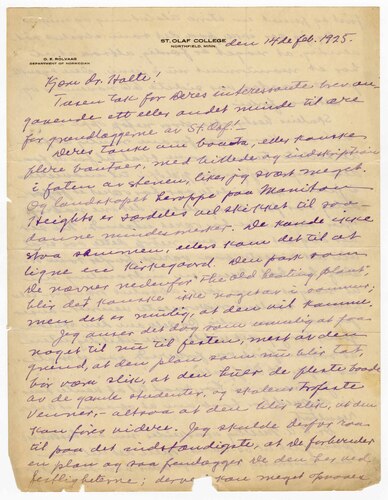 ST. OLAF COLLEGE
NORTHFIELD, MINN.
O. E. ROLVAAG
DEPARTMENT OF NORWEGIAN
den 14de feb. 1925.
Kjære dr. Holte!
Tusen tak for Deres interessante brev an-
gaaende ett eller andet minde til ære
for grundlæggerne av St. Olaf.
Deres tanke om bauta, eller kanske
flere bautaer, med billede og indskription
i foten av stenen, liker jeg svært meget.
Og landskapet heroppe paa Manitou
Heights er særdeles vel skikket til saa-
danne mindesmerker. De kunde ikke
staa sammen, ellers kom det til at
ligne en kirkegaard. Den park som
De nævner nedenfor the old heating plant,
blir det kanske ikke noget av i sommer;
men det er mulig, at den vil komme.
Jeg anser det dog som umulig at faa
noget til nu til festen, mest av den
grund, at den plan som nu blir lagt,
bør være slik, at den byder de fleste baade
av de gamle studenter, og skolens trofaste
venner, – altsaa at den blir slik, at den
kan føres videre. Jeg skulde derfor raa
til paa det indstændigste, at De forbereder
en plan og saa fremlægger De den her ved
festlighetene; derved kan meget